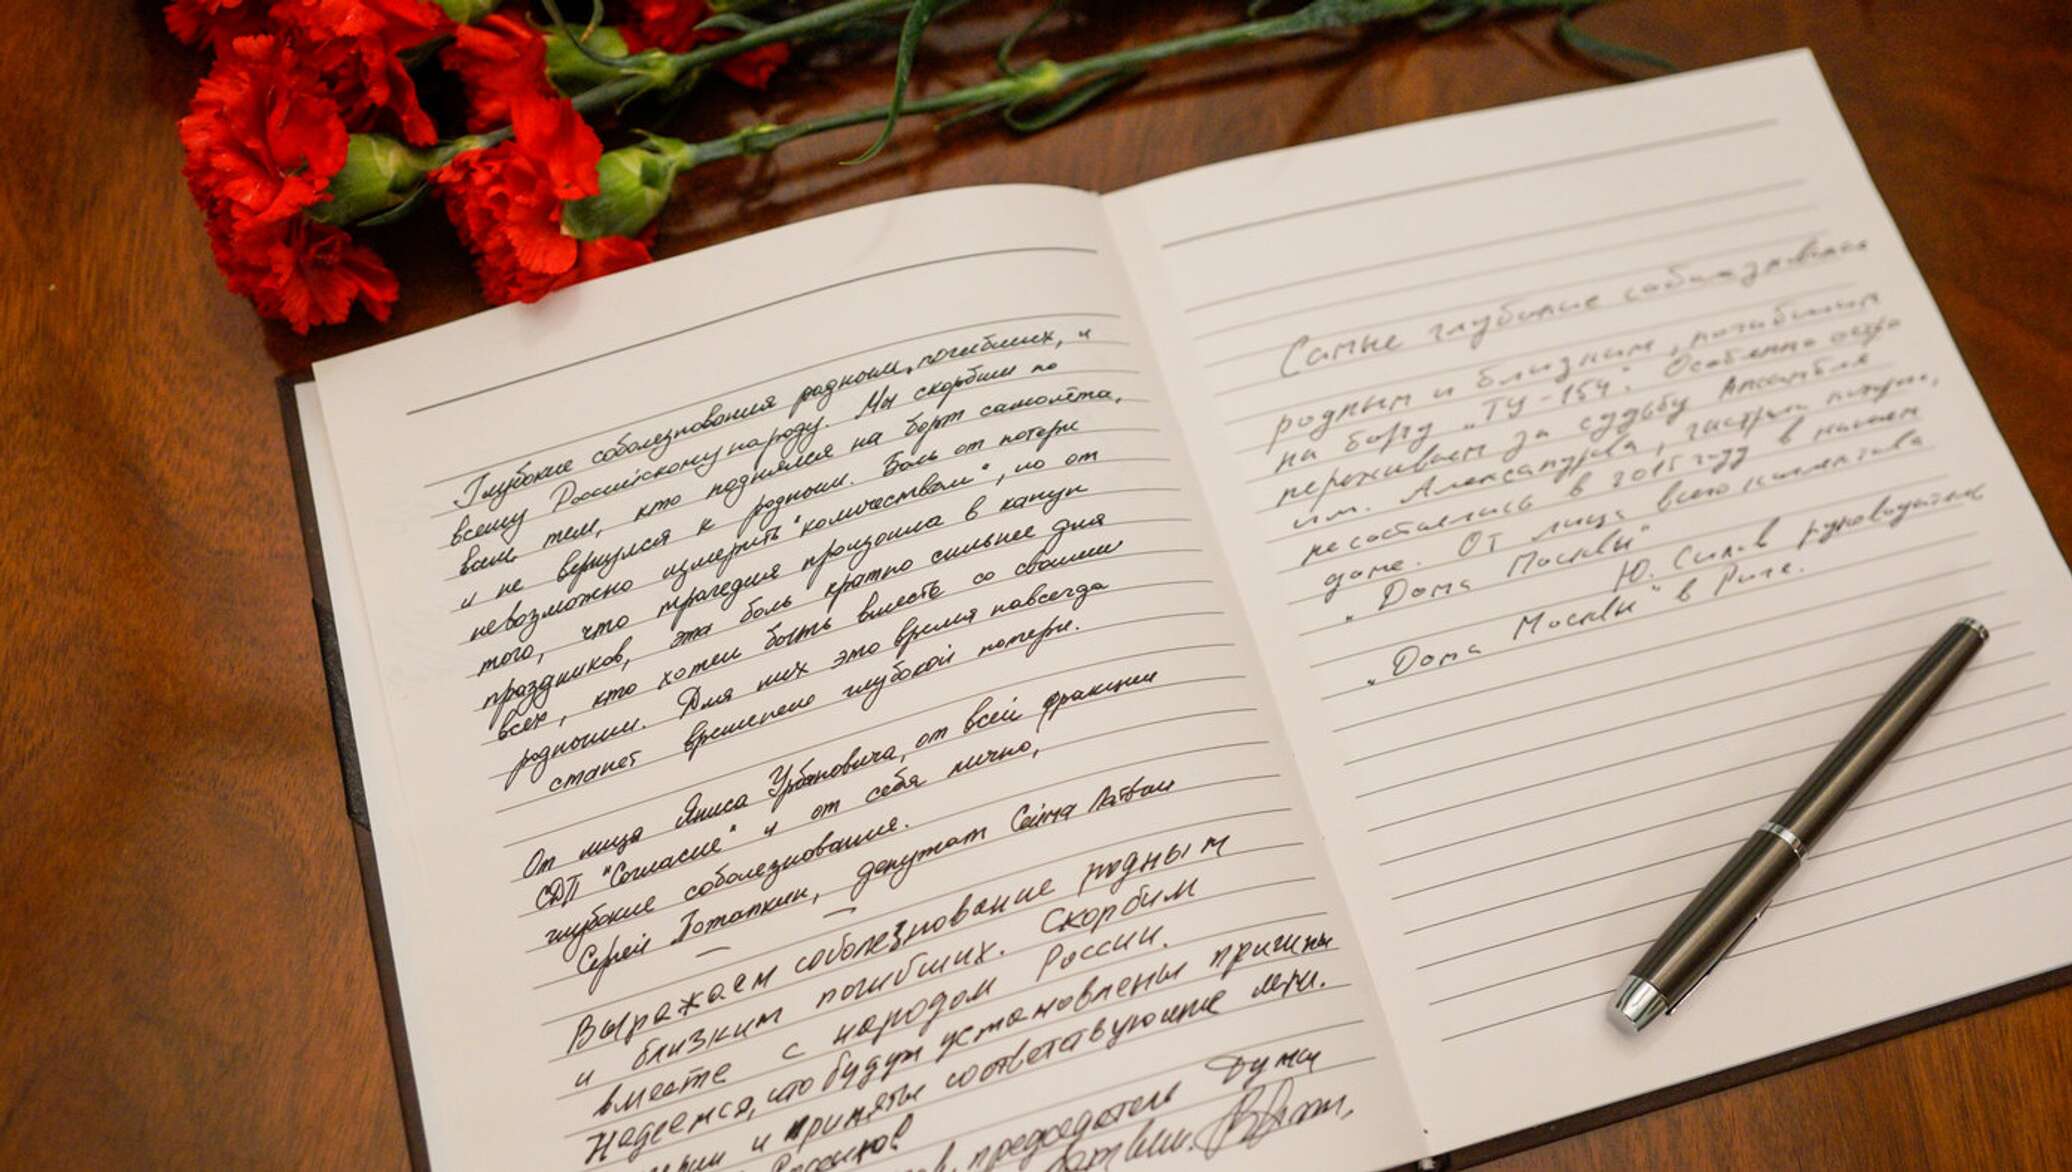 Глубокие соболезнования родным погибших, и
всему Российскому народу. Мы скорбим по
всем тем, кто поднялся на борт самолёта,
и не вернулся к родным. Боль от потери
невозможно измерить "количеством", но от
того, что трагедия произошла в канун
праздников, эта боль кратно сильнее для
всех, кто хотел быть вместе со своими
родными. Для них это время навсегда
станет временем глубокой потери.
От лица Яниса Урбановича, от всей фракции
СДП "Согласие" и от себя лично,
глубокие соболезнования.
Сергей Потапкин, депутат Сейма Латвии
Выражаем соболезнование родным
и близким погибших. Скорбим
вместе с народом России.
Надеемся, что будут установлены причины
и приняты соответствующие меры.
председатель Думы
Самые глубокие соболезнования
родным и близким, погибшим
на борту „ТУ-154". Особенно остро
переживаем за судьбу Ансамбля
им. Александрова, гастроли которого,
не состоялись в 2015 году в нашем
доме. От лица всего коллектива
„Дома Москвы"
Ю. Силов руководитель
„Дома Москвы" в Риге.